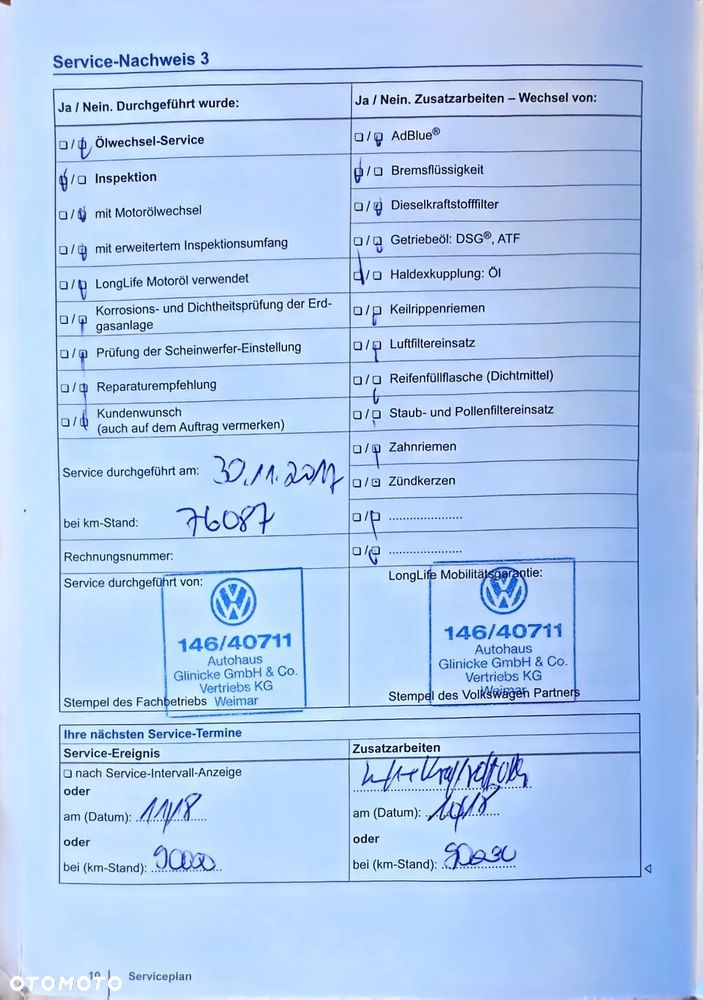 Service-Nachweis 3
Ja / Nein. Durchgeführt wurde:
Ölwechsel-Service
Inspektion
mit Motorölwechsel
mit erweitertem Inspektionsumfang
LongLife Motoröl verwendet
Korrosions- und Dichtheitsprüfung der Erd-
gasanlage
Prüfung der Scheinwerfer-Einstellung
Reparaturempfehlung
Kundenwunsch
(auch auf dem Auftrag vermerken)
Service durchgeführt am: 30.11.2017
bei km-Stand: 76087
Rechnungsnummer:
Service durchgeführt von:
146/40711
Autohaus
Glinicke GmbH & Co.
Vertriebs KG
Weimar
Stempel des Fachbetriebs
Ja / Nein. Zusatzarbeiten – Wechsel von:
AdBlue®
Bremsflüssigkeit
Dieselkraftstofffilter
Getriebeöl: DSG®, ATF
Haldexkupplung: Öl
Keilrippenriemen
Luftfiltereinsatz
Reifenfüllflasche (Dichtmittel)
Staub- und Pollenfiltereinsatz
Zahnriemen
Zündkerzen
LongLife Mobilitätsgarantie:
146/40711
Autohaus
Glinicke GmbH & Co.
Vertriebs KG
Weimar
Stempel des Volkswagen Partners
Ihre nächsten Service-Termine
Service-Ereignis
nach Service-Intervall-Anzeige
oder
am (Datum): 11/18
oder
bei (km-Stand): 90000
Zusatzarbeiten
am (Datum):
oder
bei (km-Stand):
10 | Serviceplan
OTOMOTO